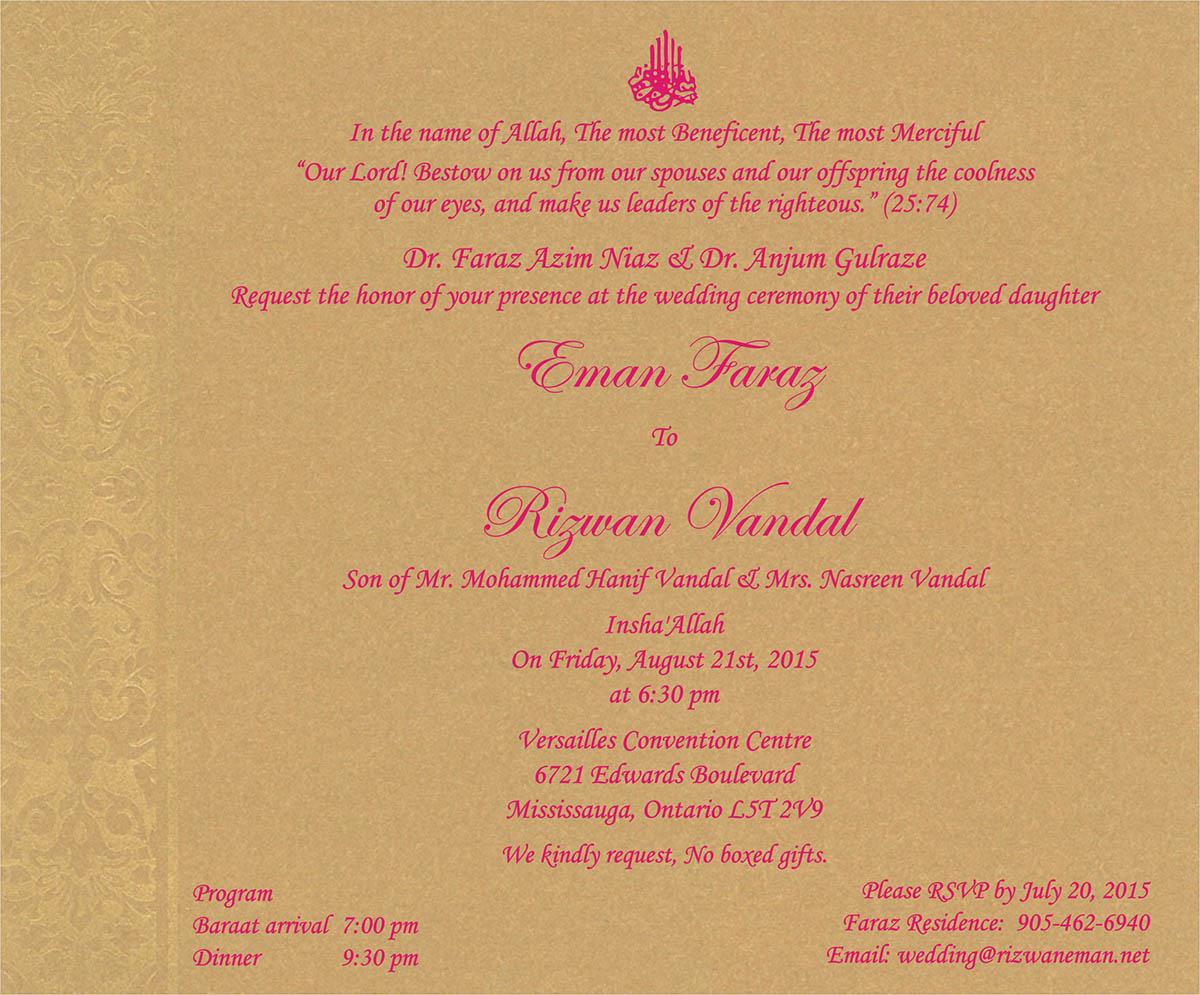 In the name of Allah, The most Beneficent, The most Merciful
“Our Lord! Bestow on us from our spouses and our offspring the coolness
of our eyes, and make us leaders of the righteous.” (25:74)
Dr. Faraz Azim Niaz & Dr. Anjum Gulraze
Request the honor of your presence at the wedding ceremony of their beloved daughter
Eman Faraz
To
Rizwan Vandal
Son of Mr. Mohammed Hanif Vandal & Mrs. Nasreen Vandal
Insha'Allah
On Friday, August 21st, 2015
at 6:30 pm
Versailles Convention Centre
6721 Edwards Boulevard
Mississauga, Ontario L5T 2V9
We kindly request, No boxed gifts.
Program
Baraat arrival 7:00 pm
Dinner 9:30 pm
Please RSVP by July 20, 2015
Faraz Residence: 905-462-6940
Email: wedding@rizwaneman.net